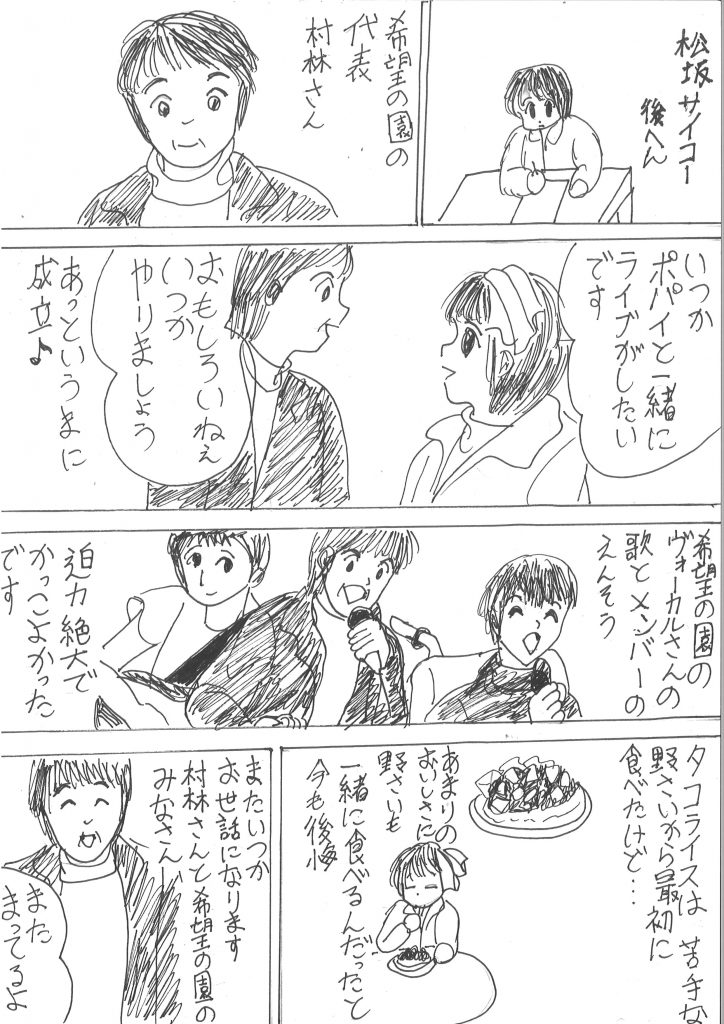 松坂サイコー
後へん
希望の園の
代表
村林さん
いつか
ポパイと一緒に
ライブがしたい
です
おもしろいねぇ
いつか
やりましょう
あっというまに
成立♪
希望の園の
ヴォーカルさんの
歌とメンバーの
えんそう
迫力絶大で
かっこよかった
です
タコライスは苦手な
野さいから最初に
食べたけど…
あまりの
おいしさに
野さいも
一緒に食べるんだったと
今も後悔
またいつか
お世話になります
村林さんと希望の園の
みなさん
また
まってるよ